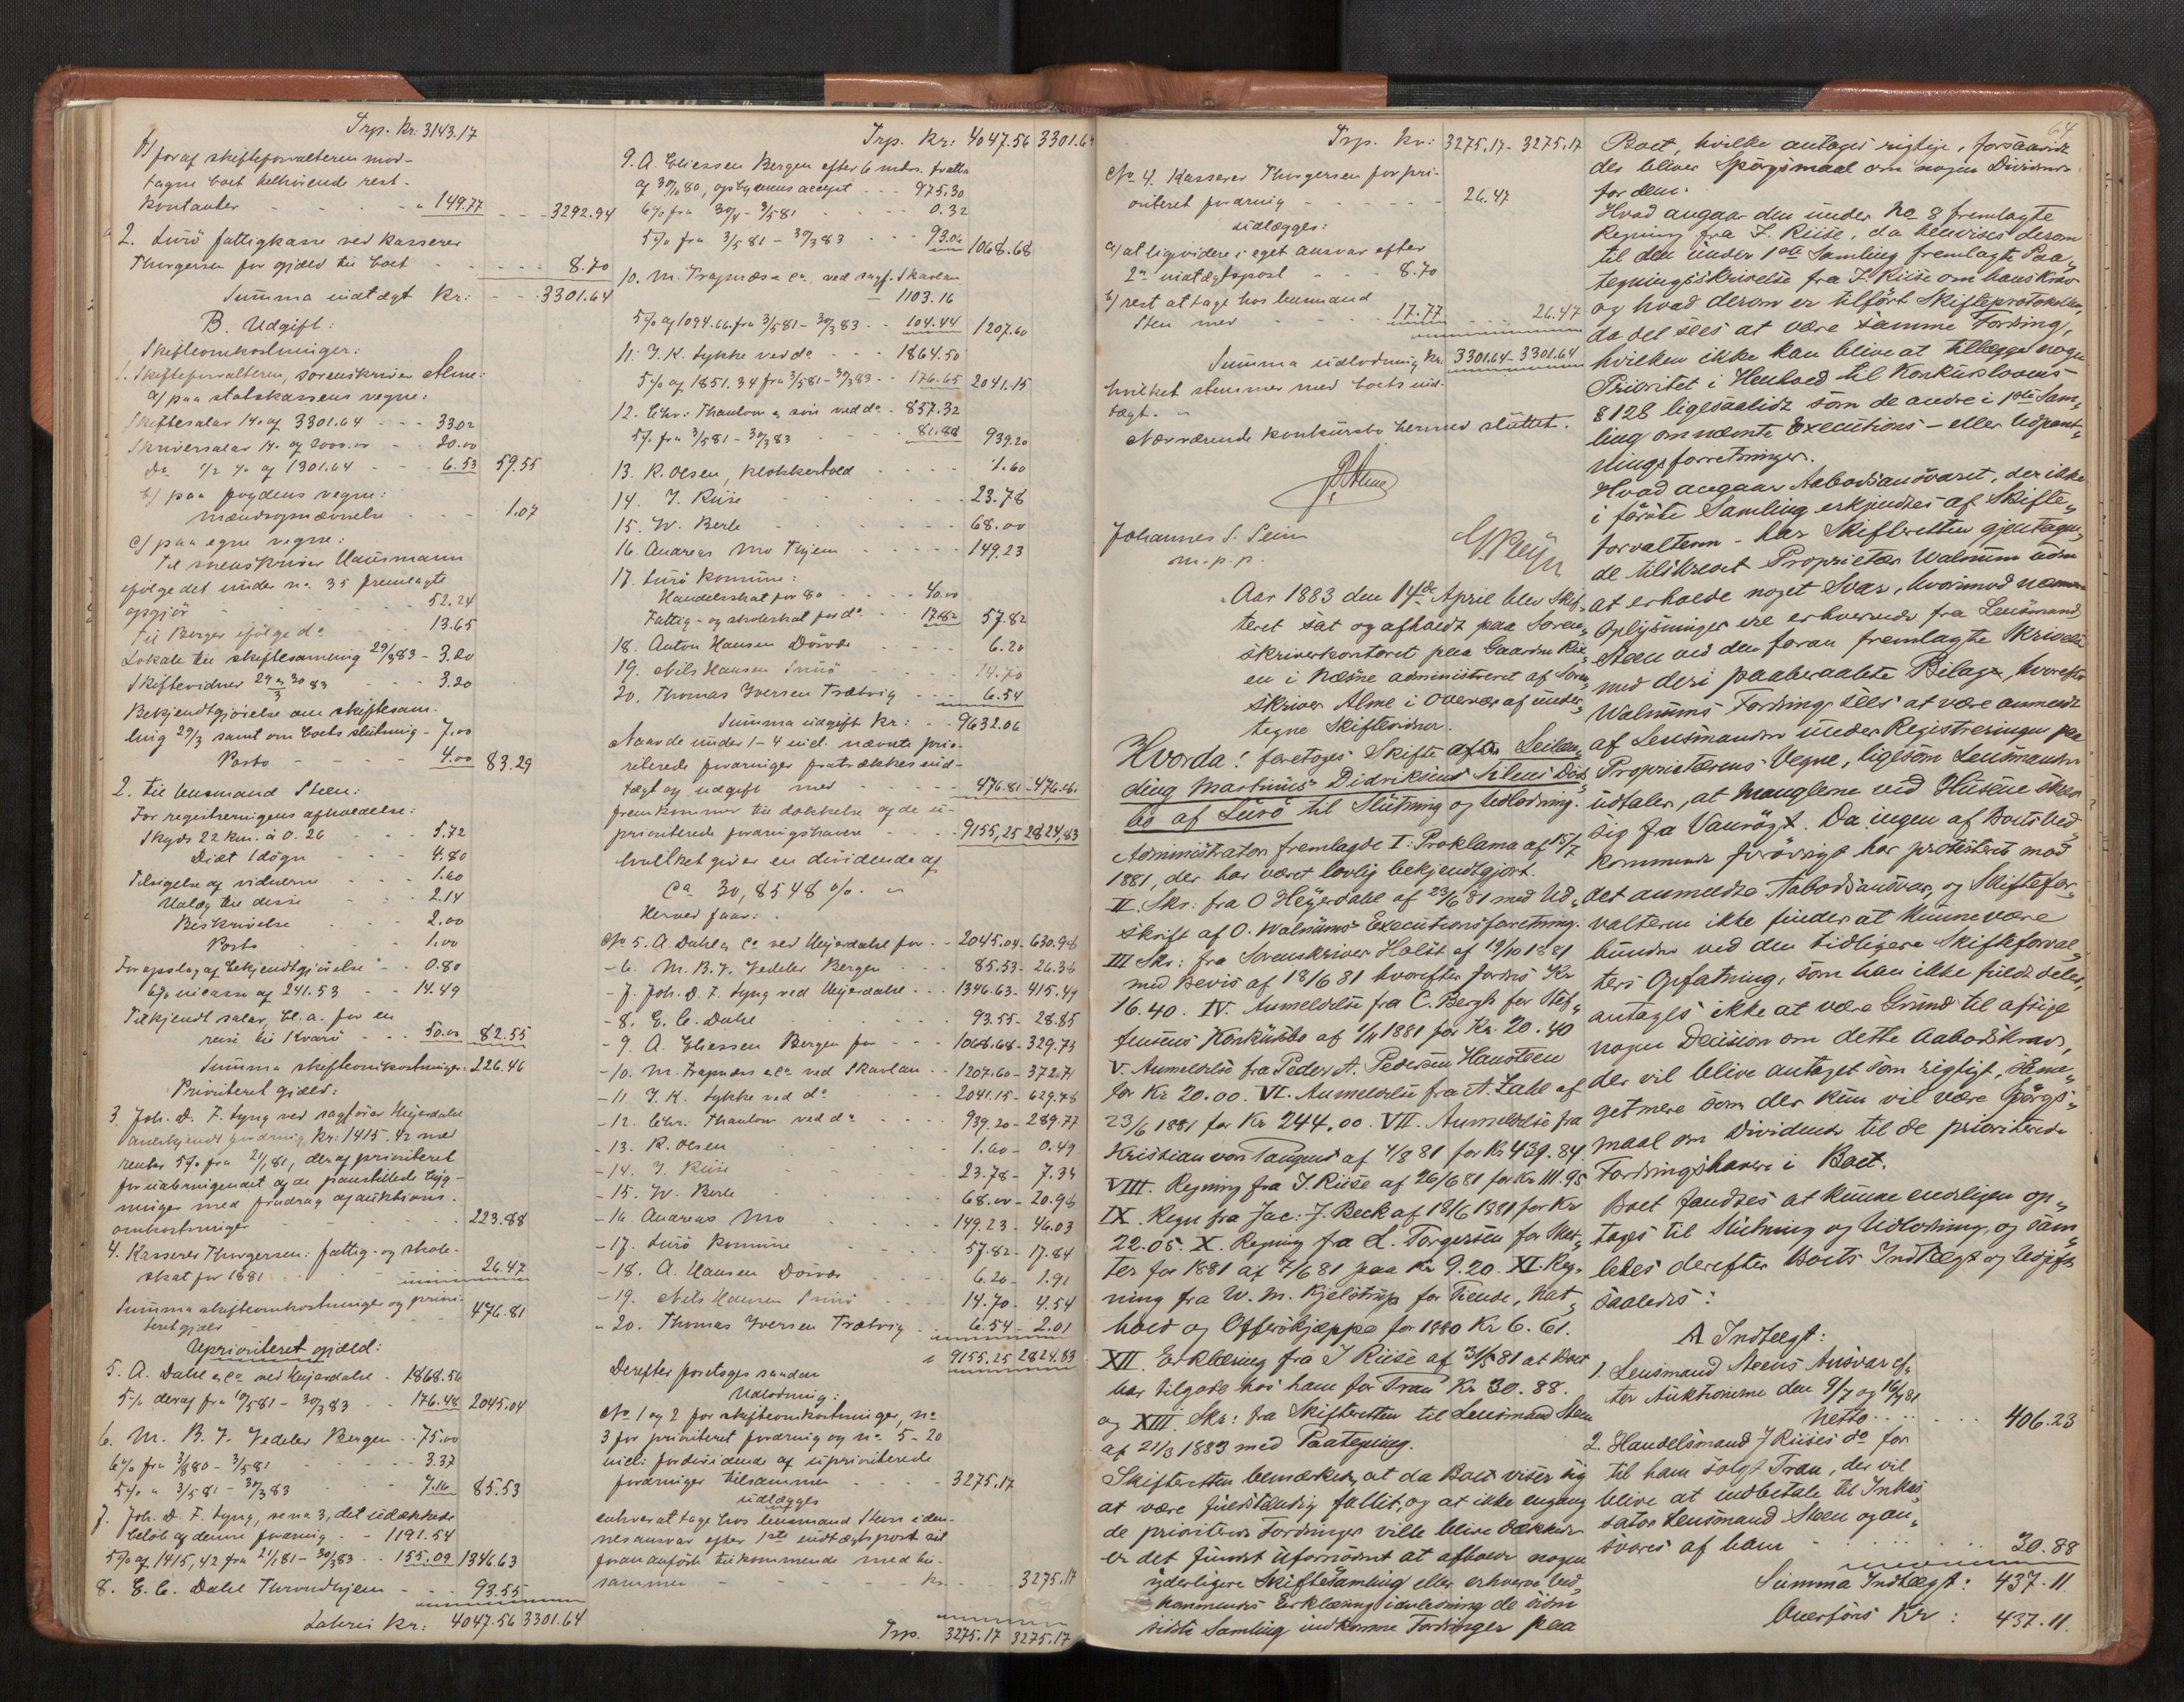 Trp. Kr: 3143.17
b) foraf skifteforvalteren mod-
tagne boet tilhørende rest-
kontanter - - - " 149.77 - - - 3292.94
2. Lurö fattigkasse ved kasserer
Thorgersen for gjæld til boet - - - 8.70
Summa indtægt Kr: - - 3301.64
B. Udgift:
Skifteomkostninger:
1. Skifteforvalteren, sorenskriver Alme:
a) paa statskassens vegne:
Skiftesalar 1% af 3301.64 - - - 33.02
Skriversalar 1% af 2000.00 - - 20.00
Do 1/2 % af 1301.64 - - 6.53 59.55
b) paa fogdens vegne:
mændsopnævnelse - - - 1.07
c) paa egne vegne:
til sorenskriver Hausmann
ifølge det under no. 35 fremlagte
opgjör - - - 52.24
til Berger ifølge do - - 13.65
Lokale til skiftesamling 29/3 83 - 3.20
Skiftevidner 29 & 30/3 83 - - - 3.20
Bekjendtgjörelse om skiftesam-
ling 29/3 samt om boets slutning - 7.00
Porto - - - - 4.00 83.29
2. til lensmand Steen:
For registreringens afholdelse:
Skyds 22 km. à 0.26 - - 5.72
Diæt 1 dögn - - 4.80
Tilsigelse af vidnerne - - 1.60
Udlæg til disse - - 2.14
Beskrivelse - - 2.00
Porto - - 1.00
For opslag af bekjendtgjörelse - - 0.80
6% incasso af 241.53 - - 14.49
Tilkjendt salar, bl. a. for en
reise til Kvarö - - - 50.00 82.55
Summa skifteomkostninger: 226.46
Prioriteret gjæld:
3. Joh. D. F. Lyng ved sagförer Heyerdahl
anerkjendt fordring kr: 1415.42 med
renter 5% fra 21/1 81, deraf prioriteret
for indbringendet af de pantstillede byg-
ninger med fradrag af auktions-
omkostninger - - - 223.88
4. Kasserer Thorgersen: fattig- og skole-
skat for 1881 - - 26.47
Summa skifteomkostninger og priori-
teret gjæld - - - 476.81
Uprioriteret gjæld:
5. A. Dahl & Co ved Heyerdahl - 1868.56
5% deraf fra 10/5 81 - 30/3 83 - - 176.48 2045.04
6. M. B. J. Vedeler Bergen - - 75.00
6% fra 3/8 80 - 3/5 81 - - - 3.37
5% " 3/5 81 - 30/3 83 - - 7.16 85.53
7. Joh. D. F. Lyng, se no 3, det udækkede
belöb af denne fordring - - 1191.54
5% af 1415,42 fra 21/1 81 - 30/3 83 - - 155.09 1346.63
8. E. C. Dahl Throndhjem - - - 93.55
Lateris Kr: 4047.56 3301.64
Trp. Kr: 4047.56 3301.64
9. A. Eliessen Bergen efter 6 mdrs. tratta
af 30/10 80, opsbydmens accept - - - 975.30
6% fra 30/4 - 3/5 81 - - 0.32
5% fra 3/5 81 - 30/3 83 - - - 93.06 1068.68
10. M. Trapnæs & Co. ved sagf. Skavlan
- 1103.16
5% af 1094.66 fra 3/5 81 - 30/3 83 - - 104.44 1207.60
11. J. K. Lykke ved do - - - 1864.50
5% af 1851.34 fra 3/5 81 - 30/3 83 - - 176.65 2041.15
12. Chr. Thaulow & sön ved do - 857.32
5% fra 3/5 81 - 30/3 83 - - 81.88 939.20
13. R. Olsen, Klokkertold - - - - 1.60
14. J. Riise - - - 23.78
15. W. Berle - - - 68.00
16. Andreas Mo Thjem - - - - 149.23
17. Lurö Komune:
Handelsskat for 80 - - - 40.00
Fattig- og skoleskat for do - 17.82 57.82
18. Anton Hansen Dörvær - - - 6.20
19. Nils Hansen - - - 14.70
20. Thomas Iversen Trætvig - - - 6.54
Summa udgift Kr: - - 9632.06
Naar de under 1 - 4 incl. nævnte prio-
riterede fordringer fratrækkes ind-
tægt og udgift med - - - 476.81 - 476.81
fremkommer til dækkelse af de u-
prioriterede fordringshavere - - - 9155,25 2824,83
hvilket giver en dividende af
ca 30,8548 %. "
Herved faar:
No 5. A. Dahl & Co ved Heyerdahl for - - 2045.04 - 630.98
- 6. M. B. J. Vedeler Bergen - - 85.53 - 26.38
- 7. Joh. D. F. Lyng ved Heyerdahl - - - 1346.63 - 415.49
- 8. E. C. Dahl - - - 93.55 - 28.85
- 9. A. Eliessen Bergen for - - - 1068.68 - 329.73
- 10. M. Trapnæs & Co ved Skavlan - - 1207.60 - 372.71
- 11. J. K. Lykke ved do - - - 2041.15 - 629.78
- 12. Chr. Thaulow ved do - - 939.20 - 289.77
- 13. R. Olsen - - - 1.60 - 0.49
- 14. J. Riise - - - 23.78 - 7.34
- 15. W. Berle - - - 68.00 - 20.98
- 16. Andreas Mo - - - 149.23 - 46.03
- 17. Lurö Komune - - - 57.82 - 17.84
- 18. A. Hansen Dörvær - - 6.20 - 1.91
- 19. Nils Hansen - - 14.70 - 4.54
" 20. Thomas Iversen Trætvig - - 6.54 - 2.01
9155.25 2824.83
Derefter foretoges saadan
Udlodning:
No 1 og 2 for skifteomkostninger, no
3 for prioriteret fordring og no. 5-20
incl: for dividende af uprioriterede
fordringer tilsammen - - - 3275.17
udlægges
enhver at tage hos lensmand Steen i den-
nes ansvar efter 1ste indtægtspost sit
foran anförte tilkommende med til-
sammen - - - - Kr. 3275.17
Trp. 3275.17 3275.17
64
Trp. Kr: 3275.17 - 3275.17
No 4. Kasserer Thorgersen for pri-
oriteret fordring - - - 26.47
udlægges:
a) at liqvidere i eget ansvar efter
2den indtægtspost - - - 8.70
b) rest at tage hos lensmand
Sten med - - - 17.77 - - 26.47
Summa udlodning Kr. 3301.64 - 3301.64
hvilket stemmer med boets ind-
tægt. "
Nærværende konkursbo hermed sluttet.
Alme
Johannes S. Sein
m. p. p.
Aar 1883 den 14de April blev Skif-
teret sat og afholdt paa Soren-
skriverkontoret paa Gaarden Rix-
en i Næsne administreret af Soren-
skriver Alme i Overvær af under-
tegne Skiftevidner.
Hvorda! foretoges Skifte efter Leilæn-
ding Martinus Didriksens Döds
bo af Lurö til Slutning og Udlodning.
Administrator fremlagde I: Proklama af 15/7
1881, der har været lovlig bekjendtgjort.
II. Skr: fra O Heyerdahl af 23/6 81 med Ud-
skrift af O. Walnums Executionsforretning.
III Skr: fra Sorenskriver Holst af 19/10 1881
med Bevis af 18/6 81 hvorefter fordres Kr
16.40. IV. Anmeldelse fra C. Bergh for Stef-
fensens Konkursbo af 1/11 1881 for Kr. 20.40
V. Anmeldelse fra Peder A. Pedersen Hansteen
for Kr 20.00. VI. Anmeldelse fra A. Zahl af
23/6 1881 for Kr 244,00. VII. Anmeldelse fra
Kristian von Tangend af 4/8 81 for Kr 439.84.
VIII. Regning fra J. Riise af 26/6 81 for Kr 111.95
IX. Regn fra Jac: J. Beck af 18/6 1881 for Kr
22.05. X. Regning fra L. Torgersen for Skat-
ter for 1881 af 7/6 81 paa Kr 9.20. XI. Reg-
ning fra W. M. Kjelstrup for Tiende, Nat-
hold og Offerskjæppe for 1880 Kr 6.61.
XII. Erklæring fra J Riise af 31/5 81 at Boet
har tilgode hos ham for Tran Kr 30.88.
og XIII. Skr: fra Skifteretten til Lensmand Steen
af 21/3 1883 med Paategning.
Skifteretten bemærker, at da Boet viser sig
at være fuldstændig fallit, og at ikke engang
de prioriterede Fordringer ville blive dækkede
er det fundet ufornödent at afholde nogen
yderligere Skiftesamling eller erhverve Ved-
kommendes Erklæring i anledning de siden
sidste Samling indkomne Fordringer paa
Boet, hvilke antages rigtige, forsaavidt
der bliver Spörgsmaal om nogen Dividende
for dem.
Hvad angaar den under No 8 fremlagte
Regning fra J. Riise, da henvises derom
til den under 1ste Samling fremlagte Paa-
tegningsskrivelse fra J. Riise om hans Krav
og hvad derom er tilfört Skifteprotokollen,
da det sees at være samme Fordring,
hvilken ikke kan blive at tillægge nogen
Prioritet i Henhold til Konkurslovens
§ 128 ligesaalidt som de andre i 1ste Sam-
ling omnævnte Executions- eller Udpant-
ningsforretninger.
Hvad angaar Aabodsansvaret, der ikke
i förste Samling erkjendtes af Skifte-
forvalteren - har Skifteretten gjentagen-
de tilskrevet Proprietær Walnum uden
at erholde noget Svar, hvorimod nærmere
Oplysninger ere erhvervede fra Lensmand
Steen ved den foran fremlagte Skrivelse
med deri paaberaabte Bilage, hvorefter
Walnums Fordring sees at være anmeldt
af Lensmanden under Registreringen paa
Proprietærens Vegne, ligesom Lensmanden
udtaler, at Manglerne ved Husene skriver
sig fra Vanrögt. Da ingen af Boets Ved-
kommende forövrigt har protesteret mod
det anmeldte Aabodsansvar, og Skiftefor-
valteren ikke finder at kunne være
bunden ved den tidligere Skifteforval-
ters Opfatning, som han ikke fuldt deler,
antages ikke at være Grund til afsige
nogen Decision om dette Aabodskrav,
der vil blive antaget som rigtigt, saame-
get mere som der kun vil være Spörgs-
maal om Dividende til de prioriterede
Fordringshavere i Boet.
Boet fandtes at kunne endeligen op-
tages til Slutning og Udlodning, og sam-
ledes derefter Boets Indtægt og Udgift
saaledes:
A Indtægt:
1. Lensmand Steens Ansvar ef-
ter Auktionerne den 9/7 og 16/7 81
Netto - - - - 406.23
2. Handelsmand J Riises do for
til ham solgt Tran, der vil
blive at indbetale til Inkas-
sator Lensmand Steen og an-
svares af ham - - - 30.88
Summa Indtægt: 437.11
Overföres Kr: 437.11.